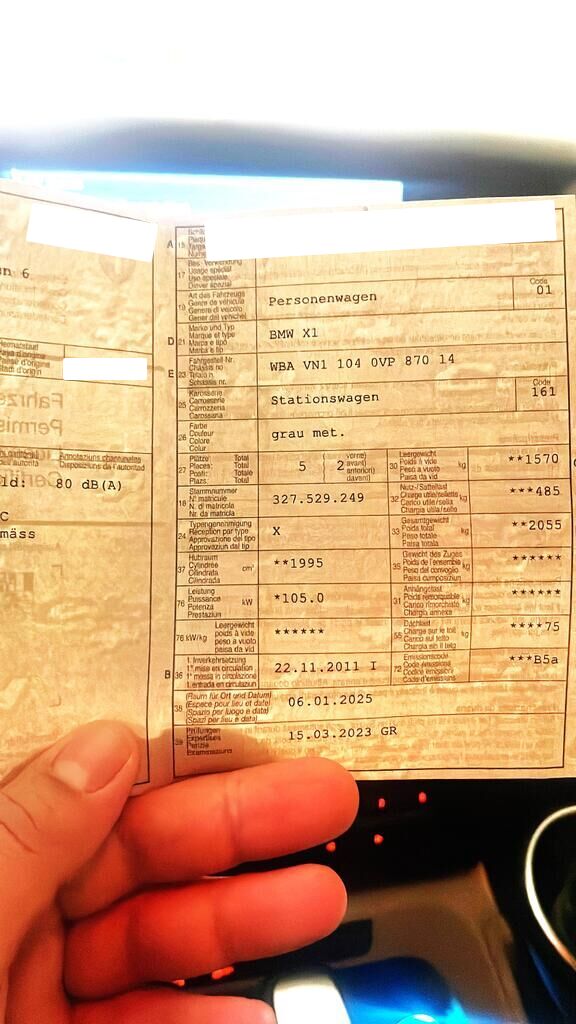 n 6
ld: 80 dB(A)
C
mäss
A 15
17 Bes. Verwendung
Usage spécial
Uso speciale
Diever spezial
19 Art des Fahrzeugs
Genre de véhicule
Genere di veicolo
Gener dal vehichel
Personenwagen
Code
01
D 21 Marke und Typ
Marque et type
Marca e tipo
Marca e tip
BMW X1
E 23 Fahrgestell-Nr.
Châssis no
Telaio n.
Schassis nr.
WBA VN1 104 0VP 870 14
25 Karosserie
Carrosserie
Carrozzeria
Carossaria
Stationswagen
Code
161
26 Farbe
Couleur
Colore
Colur
grau met.
27 Plätze: Total
Places: Total
Posti: Totale
Plazs: Total
5 ( 2 vorne)
avant)
anteriori)
davant)
30 Leergewicht
Poids à vide
Peso a vuoto
Paisa da vid
kg
**1570
18 Stammnummer
N° matricule
N. di matricola
Nr. da matricla
327.529.249
32 Nutz-/Sattellast
Charge utile/sellette
Carico utile/sella
Chargia utila/sella
kg
***485
24 Typengenehmigung
Réception par type
Approvazione del tipo
Approvaziun dal tip
X
33 Gesamtgewicht
Poids total
Peso totale
Paisa totala
kg
**2055
37 Hubraum
Cylindrée
Cilindrata
Cilindrada
cm³
**1995
35 Gewicht des Zuges
Poids de l'ensemble
Peso del convoglio
Paisa cumposiziun
kg
******
76 Leistung
Puissance
Potenza
Prestaziun
kW
*105.0
31 Anhängelast
Poids remorquable
Carico rimorchiato
Chargia annexa
kg
******
78 kW/kg Leergewicht
poids à vide
peso a vuoto
paisa da vid
******
55 Dachlast
Charge sur le toit
Carico sul tetto
Chargia sin il tetg
kg
****75
B 36 1. Inverkehrsetzung
1re mise en circulation
1a messa in circolazione
1. entrada en circulaziun
22.11.2011 I
72 Emissionscode
Code émissions
Codice emissioni
Code d'emissiuns
***B5a
38 (Raum für Ort und Datum)
(Espace pour lieu et date)
(Spazio per luogo e data)
(Spazi per lieu e data)
06.01.2025
39 Prüfungen
Expertises
Perizie
Examinaziuns
15.03.2023 GR